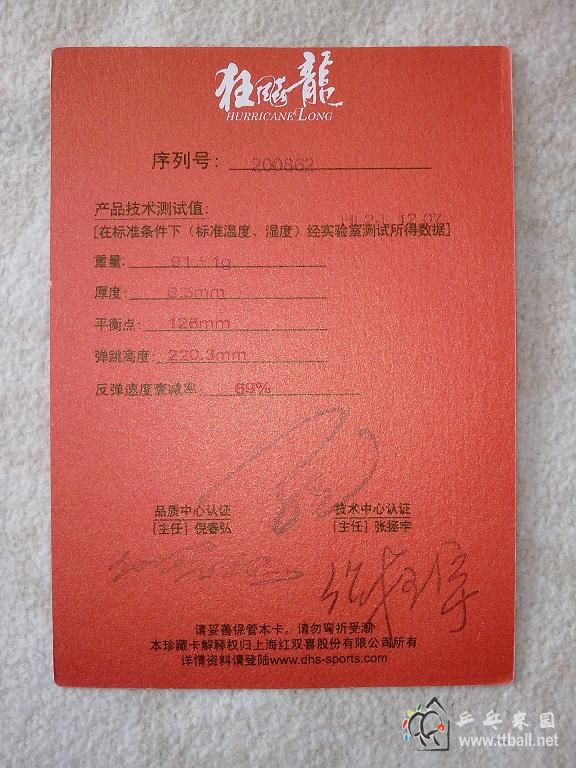 狂飚龍
HURRICANE LONG
序列号: 200862
产品技术测试值:
HL2-L 12.07
[在标准条件下（标准温度、湿度）经实验室测试所得数据]
重量: 91±1g
厚度: 6.5mm
平衡点: 126mm
弹跳高度: 220.3mm
反弹速度衰减率: 69%
品质中心认证 技术中心认证
[主任] 倪春弘 [主任] 张扬宇
请妥善保管本卡，请勿弯折受潮
本珍藏卡解释权归上海红双喜股份有限公司所有
详情资料请登陆www.dhs-sports.com
乒乓家园
www.ttball.net